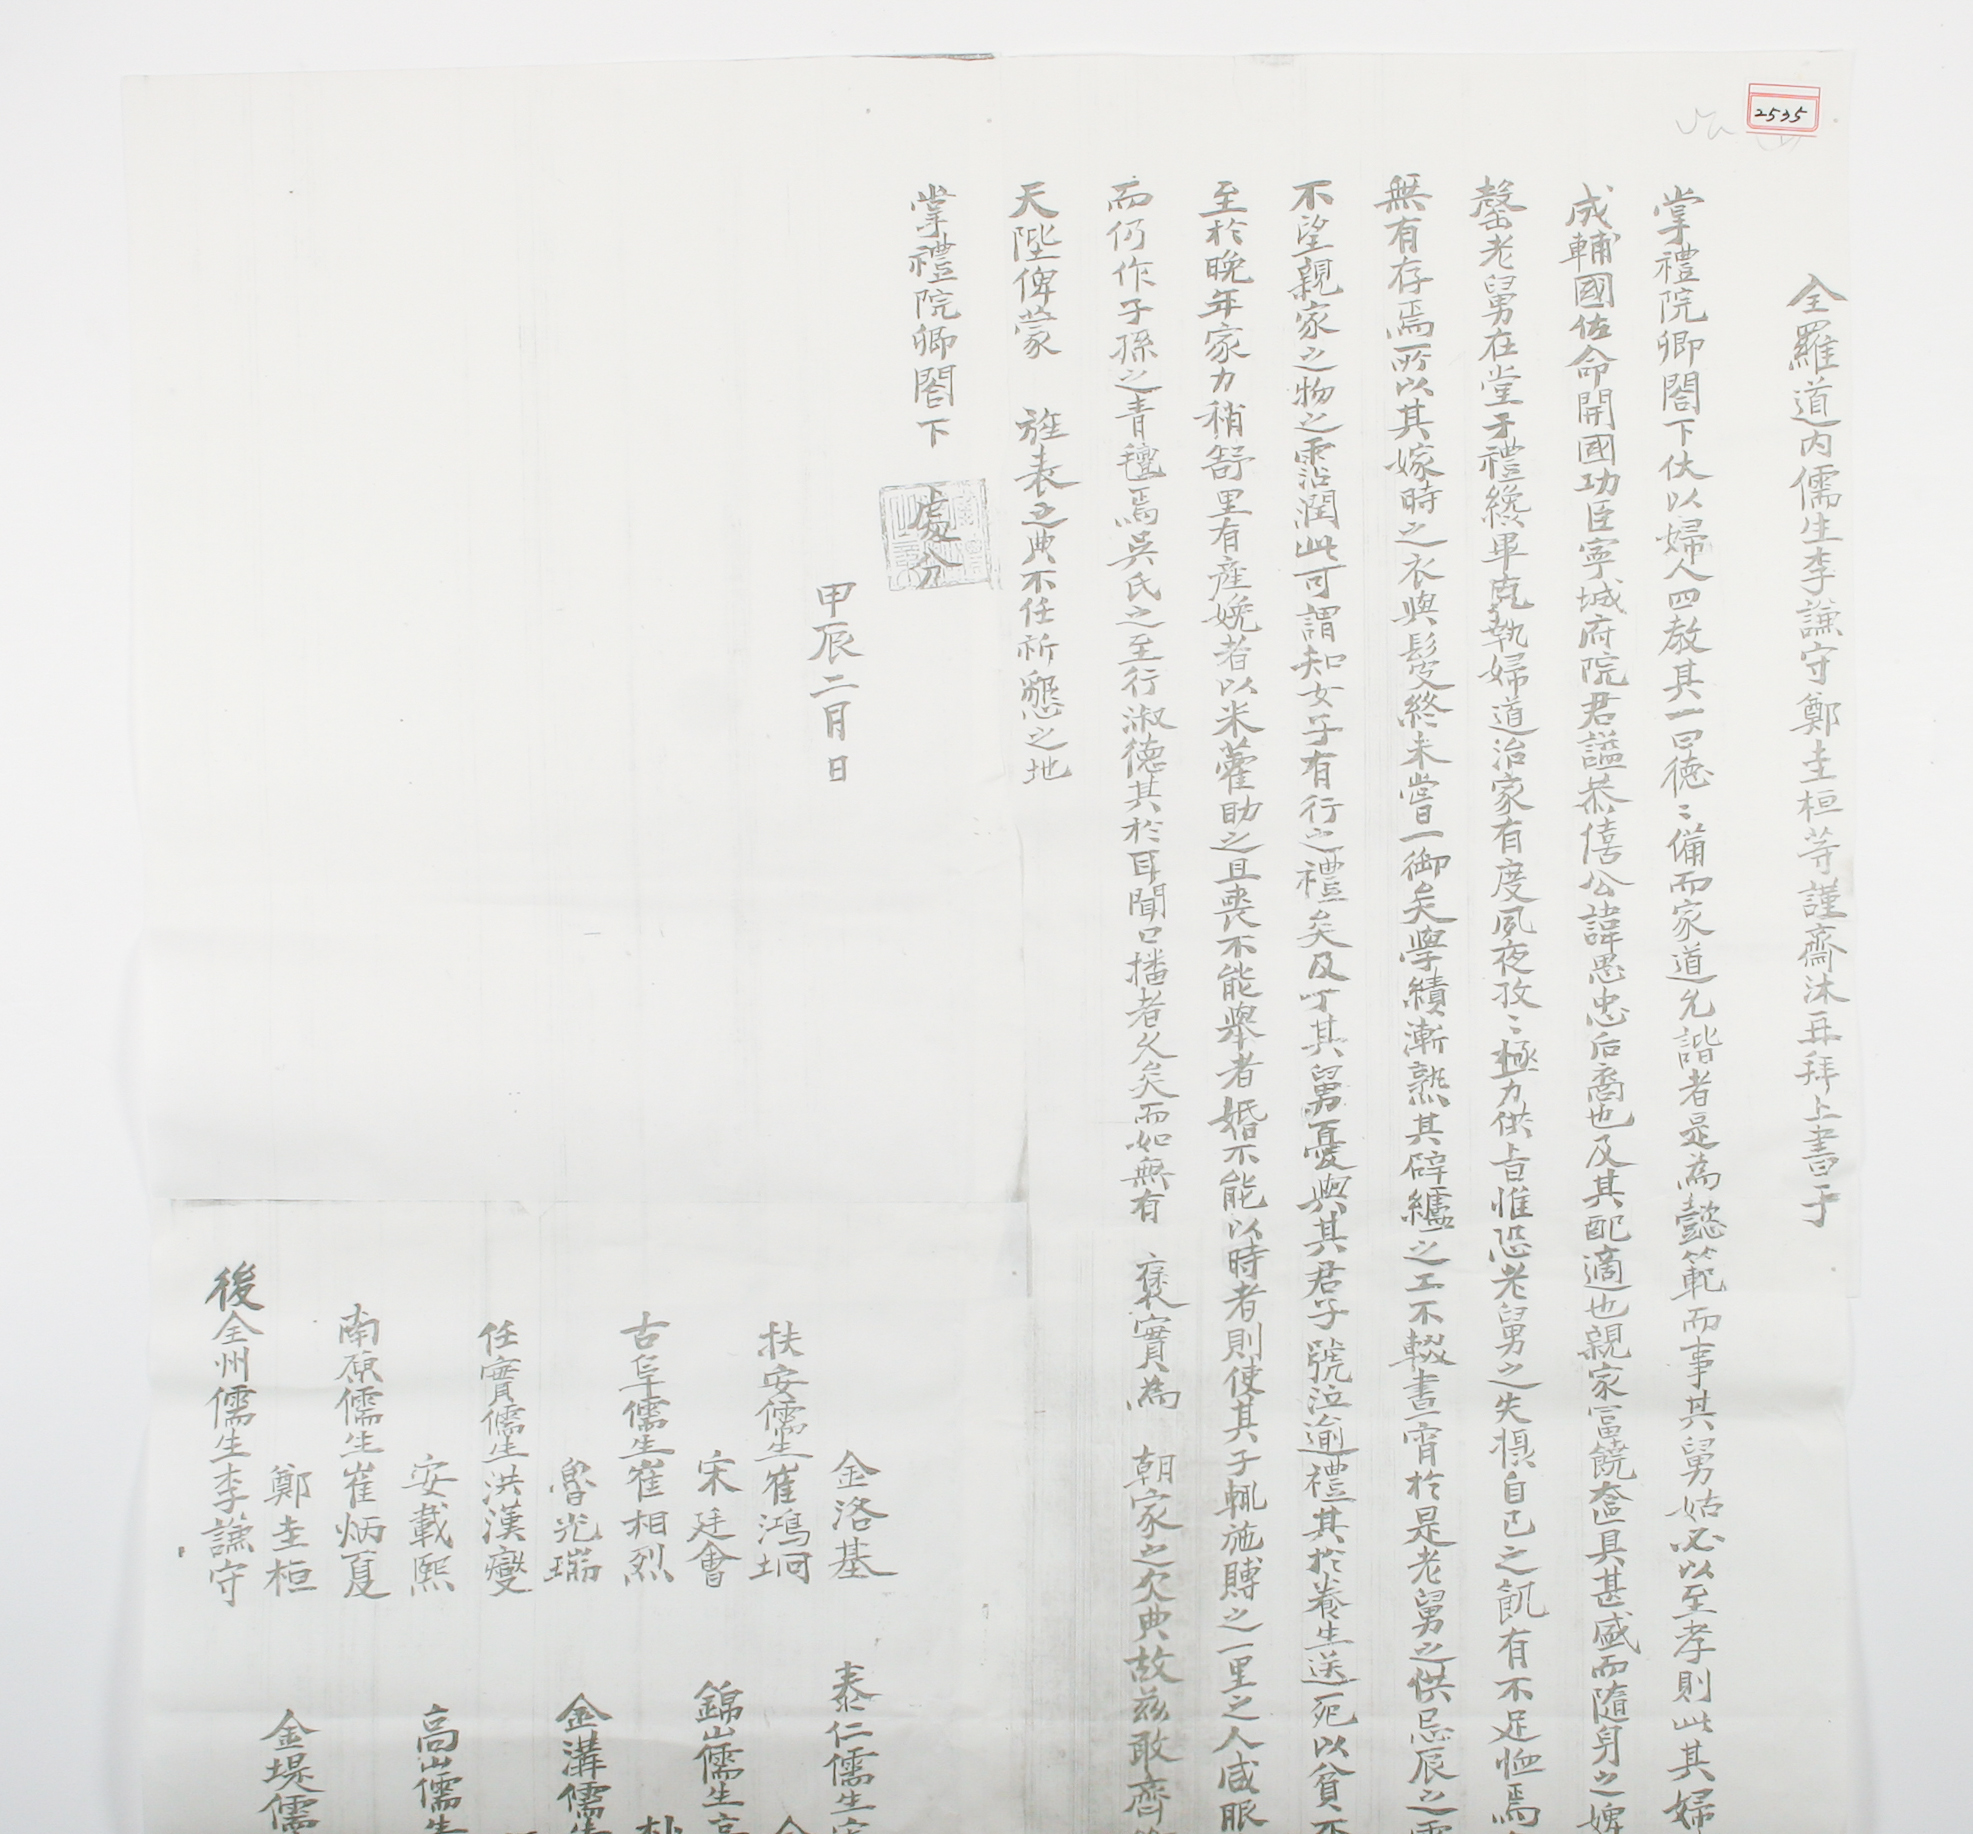 2535
全羅道内儒生李謙守鄭圭桓等謹齋沐再拜上書于
掌禮院卿閤下伏以婦人四敎其一曰德〻備而家道允諧者是為懿範而事其舅姑必以至孝則此其婦
成輔國佐命開國功臣寧城府院君謚恭僖公諱思忠后裔也及其配適也親家富饒奩具甚盛而隨身之婢
罄老舅在堂于禮纔畢克執婦道治家有度夙夜孜〻極力供旨惟恐老舅之失損自己之飢有不足恤焉
無有存焉所以其嫁時之衣與髢終未嘗一御矣學績漸熟其辟纑之工不輟晝宵於是老舅之供忌辰之需
不望親家之物之霑沾潤此可謂知女子有行之禮矣及丁其舅憂與其君子號泣逾禮其於養生送死以貧不
至於晩年家力稍舒里有産娩者以米藿助之且喪不能舉者婚不能以時者則使其子輒施賻之一里之人咸服
而仍作子孫之青氊焉吳氏之至行淑德其於耳聞口播者久矣而如無有 褒實為 朝家之欠典故玆敢齊
天陛俾蒙 旌表之典不任祈懇之地
掌禮院卿閤下 處分
甲辰二月 日
金洛基 泰仁儒生
扶安儒生崔鴻坰
宋廷會 錦山儒生高
古阜儒生崔相烈
魯光瑞 金溝儒生
任實儒生洪漢燮
安載熙 高山儒生
南原儒生崔炳夏
鄭圭桓 金堤儒
後全州儒生李謙守